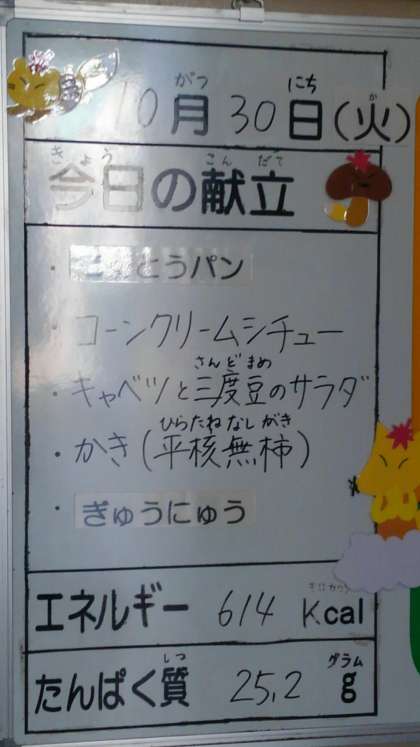 がつ にち か
10月30日(火)
きょう こんだて
今日の献立
・こくとうパン
・コーンクリームシチュー
さんどまめ
・キャベツと三度豆のサラダ
ひらたねなしがき
・かき(平核無柿)
・ぎゅうにゅう
エネルギー 614 Kcal
しつ グラム
たんぱく質 25.2 g